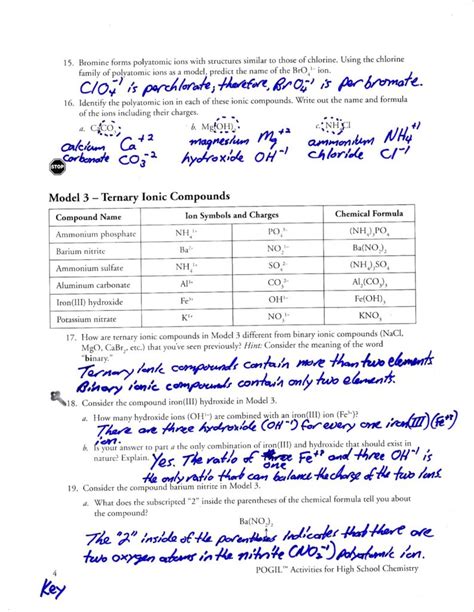 15. Bromine forms polyatomic ions with structures similar to those of chlorine. Using the chlorine
family of polyatomic ions as a model, predict the name of the BrO₄¹⁻ ion.
ClO₄⁻¹ is perchlorate; therefore, BrO₄⁻¹ is perbromate.
16. Identify the polyatomic ion in each of these ionic compounds. Write out the name and formula
of the ions including their charges.
a. CaCO₃ b. Mg(OH)₂ c. NH₄Cl
calcium Ca⁺² magnesium Mg⁺² ammonium NH₄⁺¹
STOP carbonate CO₃⁻² hydroxide OH⁻¹ chloride Cl⁻¹
Model 3 – Ternary Ionic Compounds
Compound Name Ion Symbols and Charges Chemical Formula
Ammonium phosphate NH₄¹⁺ PO₄³⁻ (NH₄)₃PO₄
Barium nitrite Ba²⁺ NO₂¹⁻ Ba(NO₂)₂
Ammonium sulfate NH₄¹⁺ SO₄²⁻ (NH₄)₂SO₄
Aluminum carbonate Al³⁺ CO₃²⁻ Al₂(CO₃)₃
Iron(III) hydroxide Fe³⁺ OH¹⁻ Fe(OH)₃
Potassium nitrate K¹⁺ NO₃¹⁻ KNO₃
17. How are ternary ionic compounds in Model 3 different from binary ionic compounds (NaCl,
MgO, CaBr₂, etc.) that you've seen previously? Hint: Consider the meaning of the word
"binary."
Ternary ionic compounds contain more than two elements.
Binary ionic compounds contain only two elements.
18. Consider the compound iron(III) hydroxide in Model 3.
a. How many hydroxide ions (OH¹⁻) are combined with an iron(III) ion (Fe³⁺)?
There are three hydroxide (OH⁻¹) for every one iron(III) (Fe⁺³)
ion.
b. Is your answer to part a the only combination of iron(III) and hydroxide that should exist in
nature? Explain. Yes. The ratio of one Fe⁺³ and three OH⁻¹ is
the only ratio that can balance the charge of the two ions.
19. Consider the compound barium nitrite in Model 3.
a. What does the subscripted "2" inside the parentheses of the chemical formula tell you about
the compound?
Ba(NO₂)₂
The "2" inside of the parentheses indicates that there are
two oxygen atoms in the nitrite (NO₂⁻¹) polyatomic ion.
4 POGIL™ Activities for High School Chemistry
Key